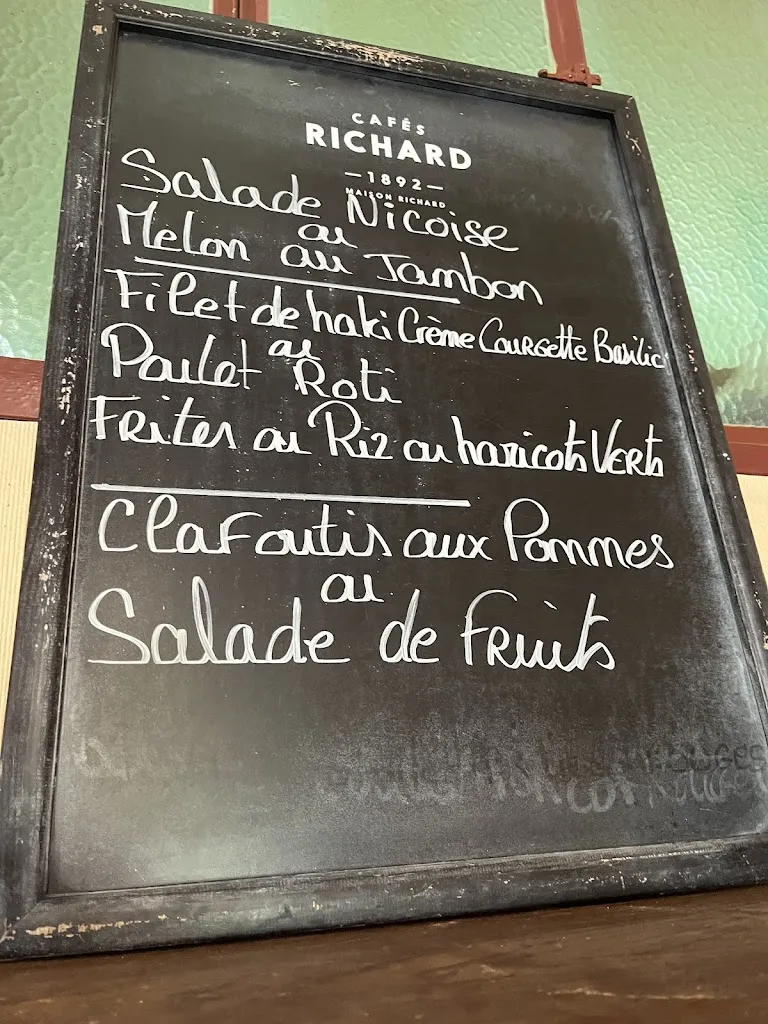 CAFÉS
RICHARD
—1892—
MAISON RICHARD
Salade Nicoise
ou
Melon au Jambon
Filet de haki Crème Courgette Basilic
ou
Poulet Roti
Frites ou Riz ou haricots Verts
Clafoutis aux Pommes
ou
Salade de Fruits